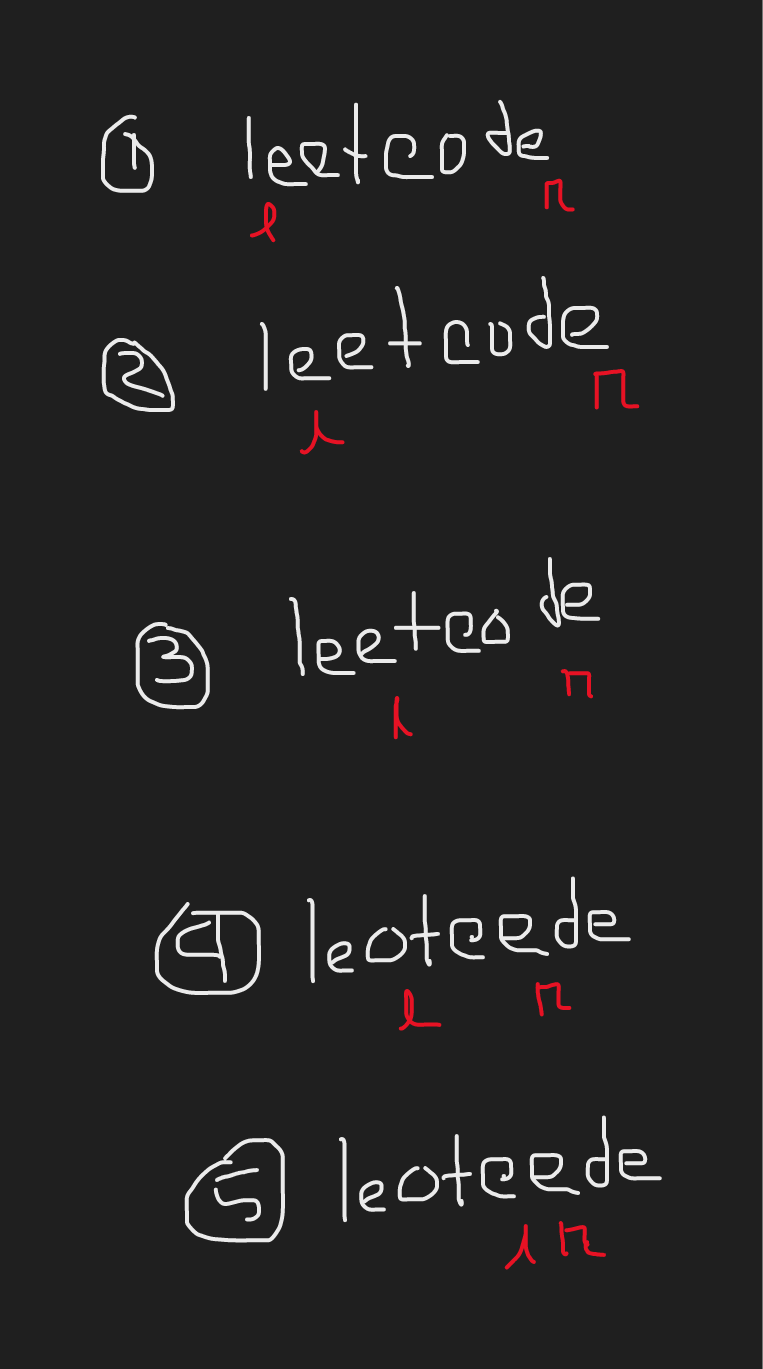 ① leetcode
l r
② leetcode
l r
③ leetcode
l r
④ leotcede
l r
⑤ leotcede
l r